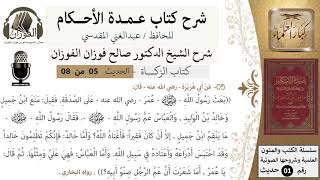 شرح كتاب عمدة الأحكام
للحافظ / عبدالغني المقدسي
شرح الشيخ الدكتور صالح فوزان الفوزان
كتاب الزكاة - الحديث 05 من 08
05- عَنْ أَبِي هُرَيْرَةَ - رضي الله عنه - قَالَ:
((بَعَثَ رَسُولُ اللَّهِ - ﷺ - عُمَرَ - رضي الله عنه - عَلَى الصَّدَقَةِ، فَقِيلَ: مَنَعَ ابْنُ جَمِيلٍ
وَخَالِدُ بْنُ الْوَلِيدِ، وَالْعَبَّاسُ عَمُّ رَسُولِ اللَّهِ - ﷺ - فَقَالَ رَسُولُ اللَّهِ - ﷺ -
مَا يَنْقِمُ ابْنُ جَمِيلٍ، إلاَّ أَنْ كَانَ فَقِيرًا: فَأَغْنَاهُ اللَّهُ؟ وَأَمَّا خَالِدٌ: فَإِنَّكُمْ تَظْلِمُونَ خَالِدًا
وَقَدِ احْتَبَسَ أَدْرَاعَهُ وَأَعْتَادَهُ فِي سَبِيلِ اللَّهِ. وَأَمَّا الْعَبَّاسُ: فَهِيَ عَلَيَّ وَمِثْلُهَا. ثُمَّ قَالَ:
يَا عُمَرُ، أَمَا شَعَرْتَ أَنَّ عَمَّ الرَّجُلِ صِنْوُ أَبِيهِ؟)) . رواه البخاري .
الفوزان
كبار العلماء
سلسلة الكتب والمتون
العلمية وشروحها الصوتية
رقم 01 حديث